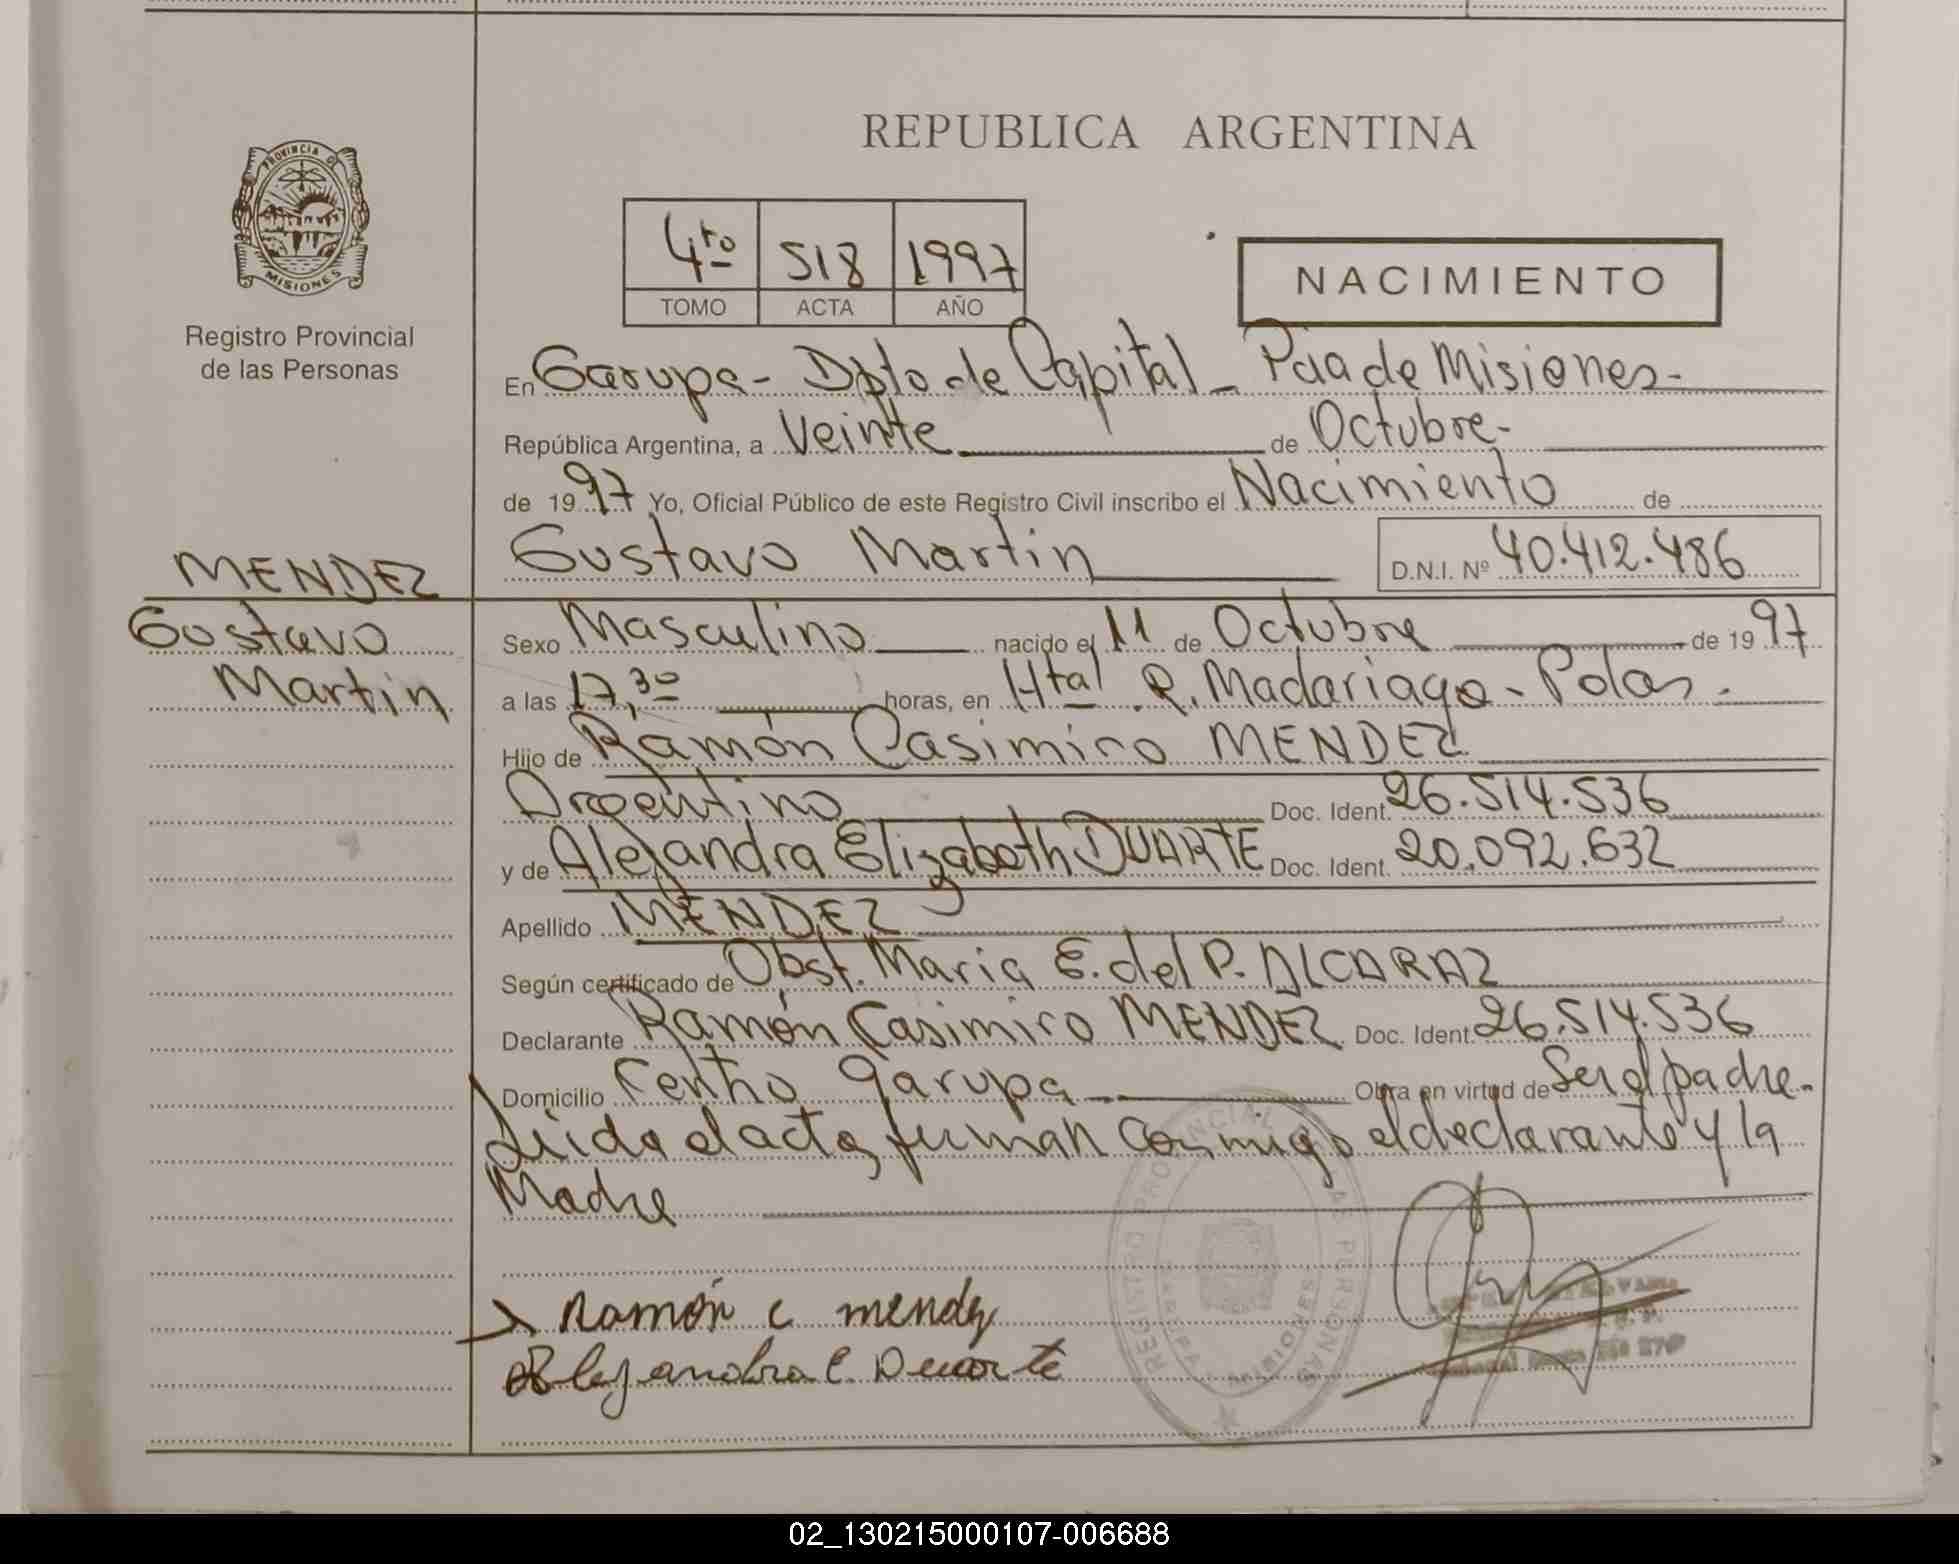 REPUBLICA ARGENTINA
PROVINCIA D
MISIONES
Registro Provincial
de las Personas
4to 518 1997
TOMO ACTA AÑO
NACIMIENTO
En Garupa - Dpto de Capital - Pcia de Misiones -
República Argentina, a Veinte de Octubre -
de 1997 Yo, Oficial Público de este Registro Civil inscribo el Nacimiento de
Gustavo Martin D.N.I. Nº 40.412.486
MENDEZ
Gustavo
Martin
Sexo Masculino nacido el 11 de Octubre de 1997
a las 17,30 horas, en Htal R. Madariaga - Pdas -
Hijo de Ramón Casimiro MENDEZ
Argentino Doc. Ident. 26.514.536
y de Alejandra Elizabeth DUARTE Doc. Ident. 20.092.632
Apellido MENDEZ
Según certificado de Obst. Maria E. del P. ALCARAZ
Declarante Ramón Casimiro MENDEZ Doc. Ident. 26.514.536
Domicilio Centro Garupa Obra en virtud de Ser el padre -
Leida el acta, firman conmigo el declarante y la
Madre
REGISTRO PROVINCIAL DE LAS PERSONAS
GARUPA MISIONES
Ramón c mendez
Alejandra E. Duarte
02_130215000107-006688